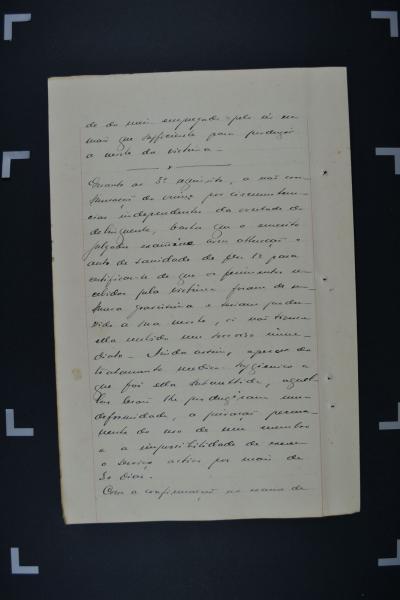 de do meio empregado pelo réo era
mais que sufficiente para produzir
a morte da victima.
Quanto ao 3º requisito, a não con-
summação do crime por circumstan-
cias independentes da vontade do
delinquente, basta que o emerito
julgador examine com attenção o
auto de sanidade de fls 12 para
certificar-se de que os ferimentos re-
cebidos pela victima foram de na-
tureza gravissima e teriam produ-
zido a sua morte, si não tivesse
ella recebido um soccorro imme-
diato. Ainda assim, apesar do
tratamento medico hygienico a
que foi ella submettida, aquel-
las lesões lhe produziram uma
deformidade, a privação perma-
nente do uso de um membro
e a impossibilidade de exercer
o serviço activo por mais de
30 dias.
Com a confirmação no summa de